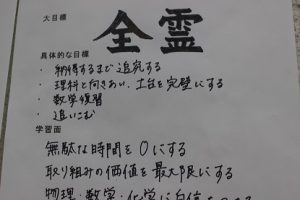 大目標
全霊
具体的な目標
・ 納得するまで追究する
・ 理科と向きあい、土台を完璧にする
・ 数学復習
・ 追いこむ
学習面
無駄な時間を0にする
取り組みの価値を最大限にする
物理・数学・化学に自信をつける